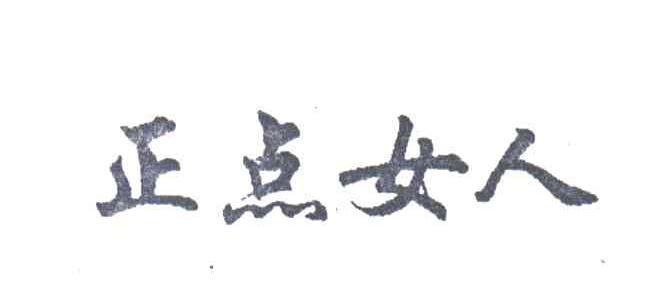 正点女人